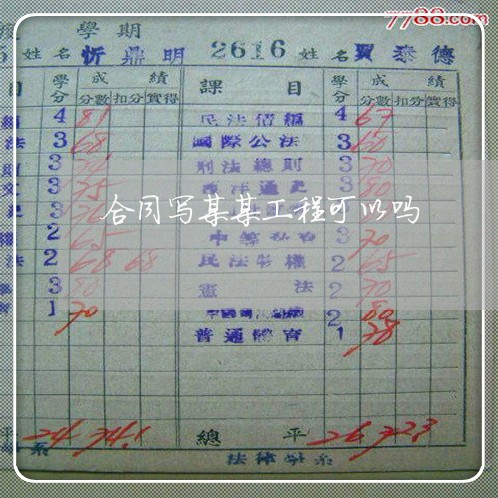 7788.com
學期
5 姓名 忻鼎明 2616 姓名 賈泰德
目 學分 成績 課目 學分 成績
分數 扣分 實得 分數 扣分 實得
4 81 民法債編 4 67
法 3 68 國際公法 3 60
3 刑法總則 3 70
3 75 3 80
合同写某某工程可以吗
2 65 3 70
法 2 68 68 民法物權 2 65
3 80 憲法 2 70
1 70 2 80
普通體育 1 78
平 24 74.1 總平 26 72.3
系 法律學系